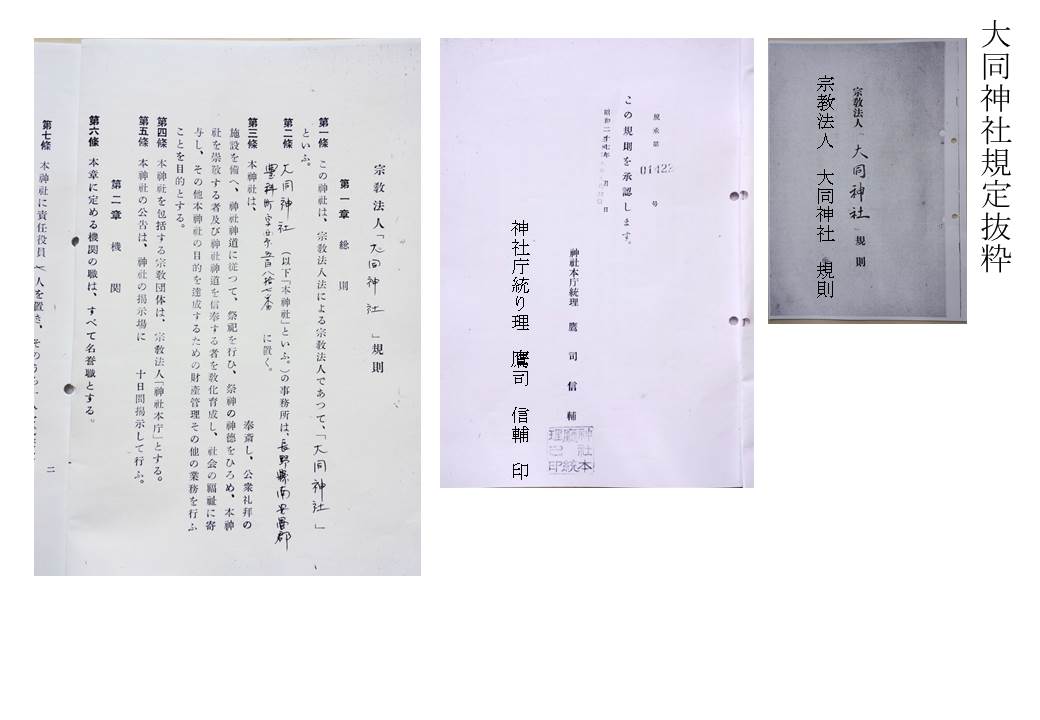 大同神社規定抜粋
宗教法人「大同神社」規則
宗教法人　大同神社　規則
この規則を承認します。
01422
号
昭和二十七年　月　日
神社本庁統理　鷹司信輔
神社本庁統理之印
神社庁統り理　鷹司　信輔　印
宗教法人「大同神社」規則
第一章　総則
第一條　この神社は、宗教法人法による宗教法人であつて、「大同神社」
といふ。
第二條　大同神社（以下「本神社」といふ。）の事務所は、長野縣南安曇郡
豊科町字
に置く。
第三條　本神社は、　奉斎し、公衆礼拝の
施設を備へ、神社神道に従つて、祭祀を行ひ、祭神の神徳をひろめ、本神
社を崇敬する者及び神社神道を信奉する者を教化育成し、社会の福祉に寄
与し、その他本神社の目的を達成するための財産管理その他の業務を行ふ
ことを目的とする。
第四條　本神社を包括する宗教団体は、宗教法人「神社本庁」とする。
第五條　本神社の公告は、神社の掲示場に　十日間掲示して行ふ。
第二章　機関
第六條　本章に定める機関の職は、すべて名誉職とする。
第七條　本神社に責任役員　人を置き、そのうち一人
二